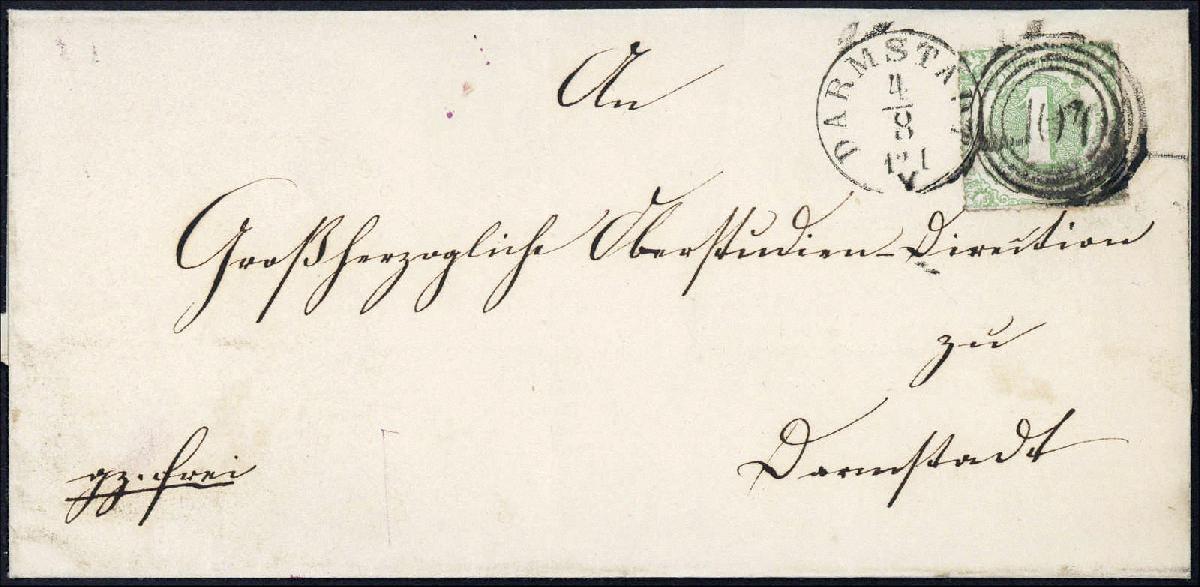 DARMSTADT
4
8
1
An
Großherzogliche Oberstudien-Direction
zu
Darmstadt
gz. frei